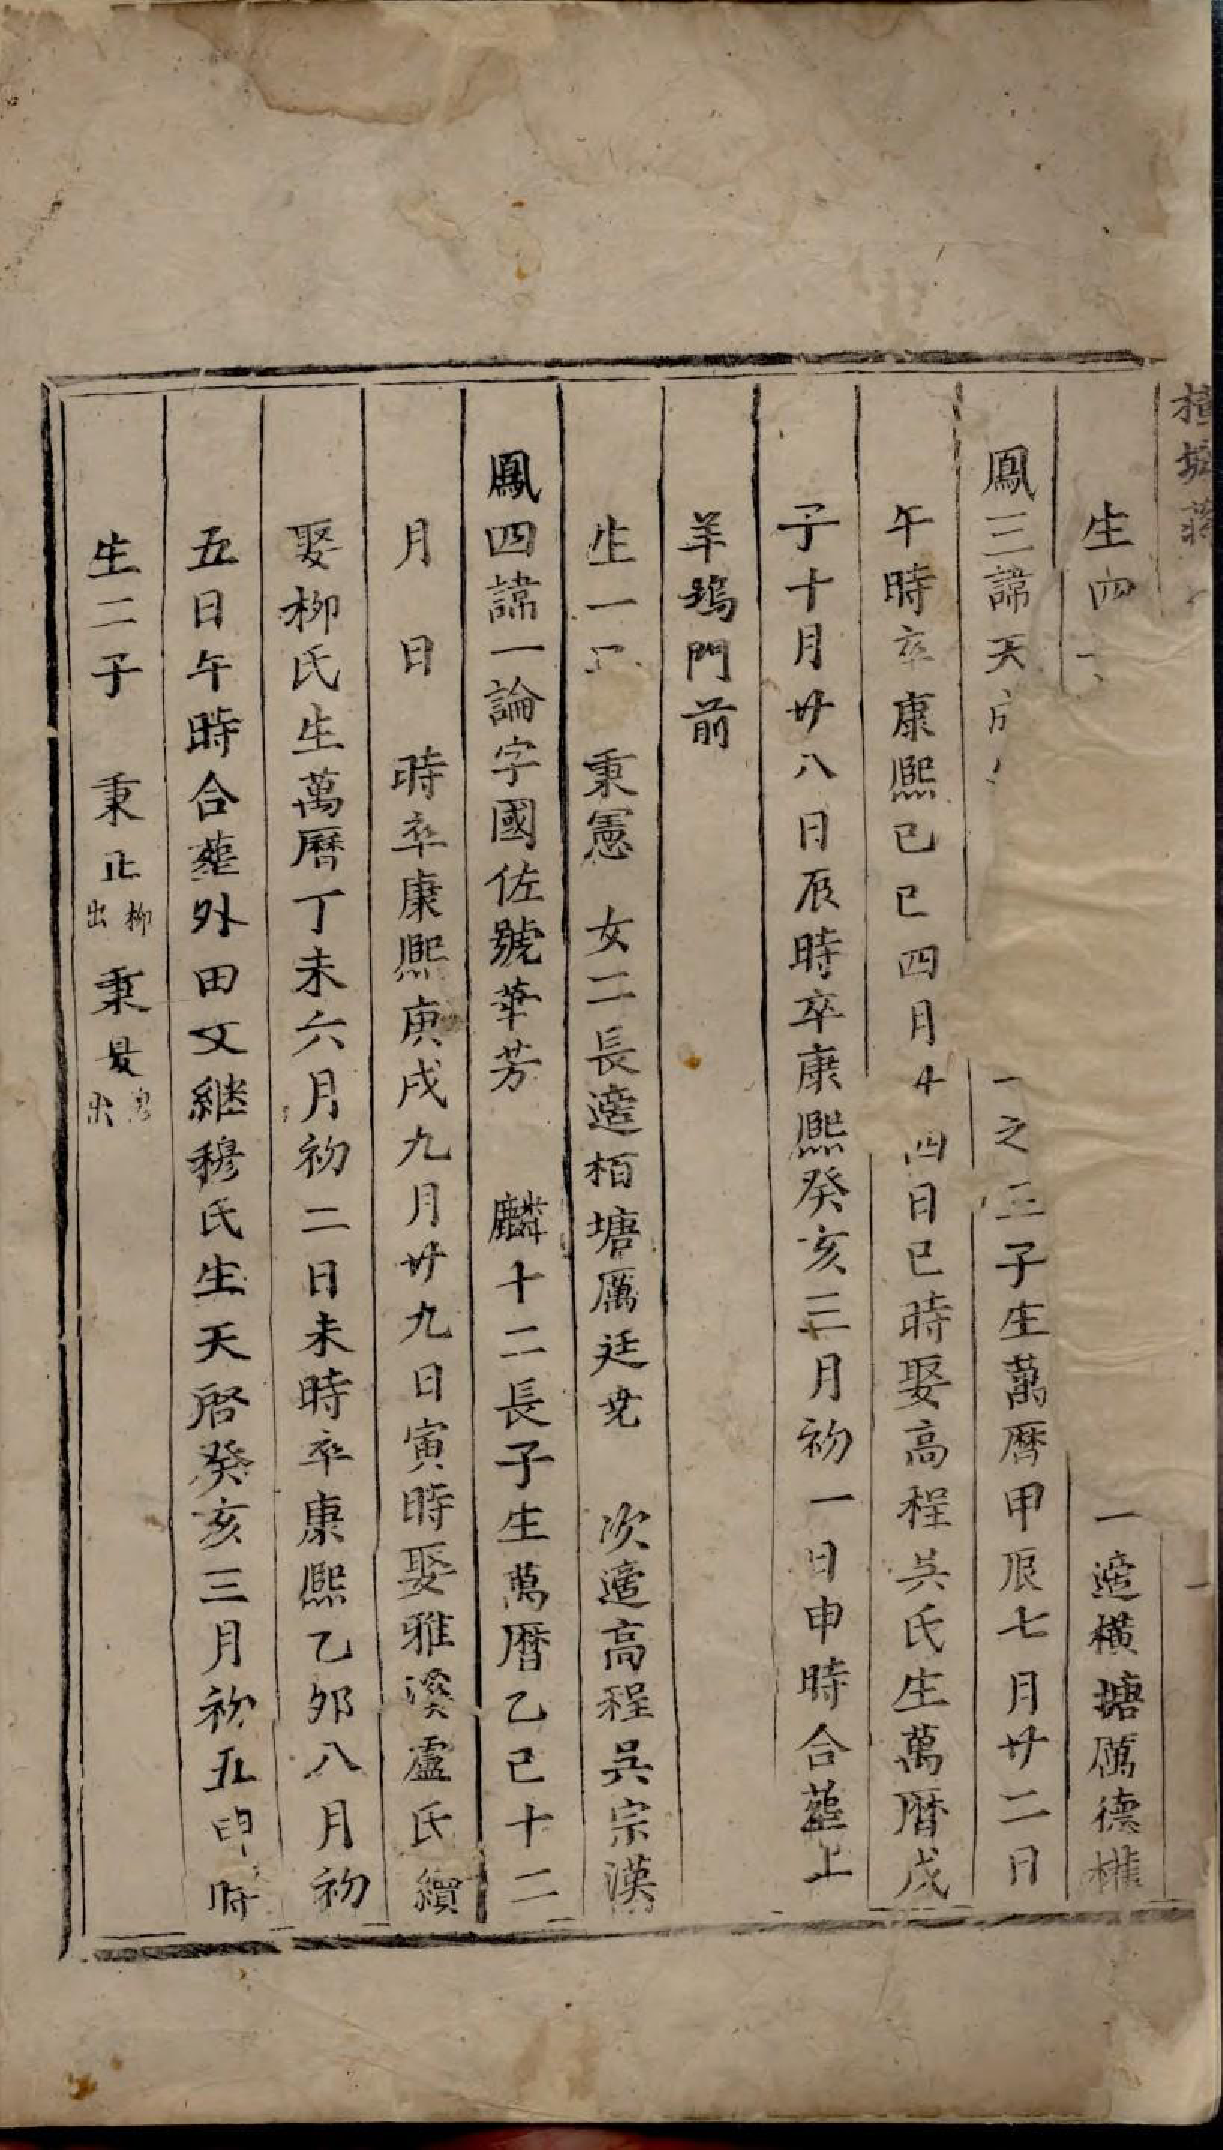 橫塘蔣
生四 一適橫塘厲德樵
鳳三諱天 一之三子生萬曆甲辰七月廿二日
午時卒康熙己巳四月 四日巳時娶高程吳氏生萬曆戊
子十月廿八日辰時卒康熙癸亥三月初一日申時合葬上
羊塢門前
生一 秉憲 女二長適栢塘厲廷堯 次適高程吳宗漢
鳳四諱一論字國佐號華芳 麟十二長子生萬曆乙巳十二
月 日 時卒康熙庚戌九月廿九日寅時娶雅溪盧氏續
娶柳氏生萬曆丁未六月初二日未時卒康熙乙夘八月初
五日午時合葬外田又継穆氏生天啓癸亥三月初五申時
生二子 秉正柳出 秉昃 出